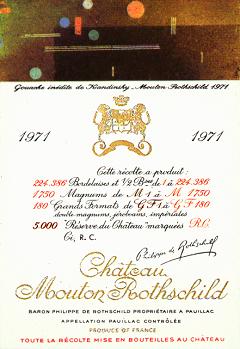 Gouache inédite de Kandinsky - Mouton Rothschild 1971
1971 1971
Cette récolte a produit:
224.386 Bordelaises et 1/2 Bses de 1 à 224.386
1750 Magnums de M 1 à M 1750
180 Grands Formats de G F 1 à G F 180
double magnums, jéroboams, impériales
5000 "Réserve du Château" marquées R.C.
Ci, R.C.
Philippe de Rothschild
Château
Mouton Rothschild
BARON PHILIPPE DE ROTHSCHILD PROPRIÉTAIRE A PAUILLAC
APPELLATION PAUILLAC CONTRÔLÉE
PRODUCE OF FRANCE
TOUTE LA RÉCOLTE MISE EN BOUTEILLES AU CHÂTEAU